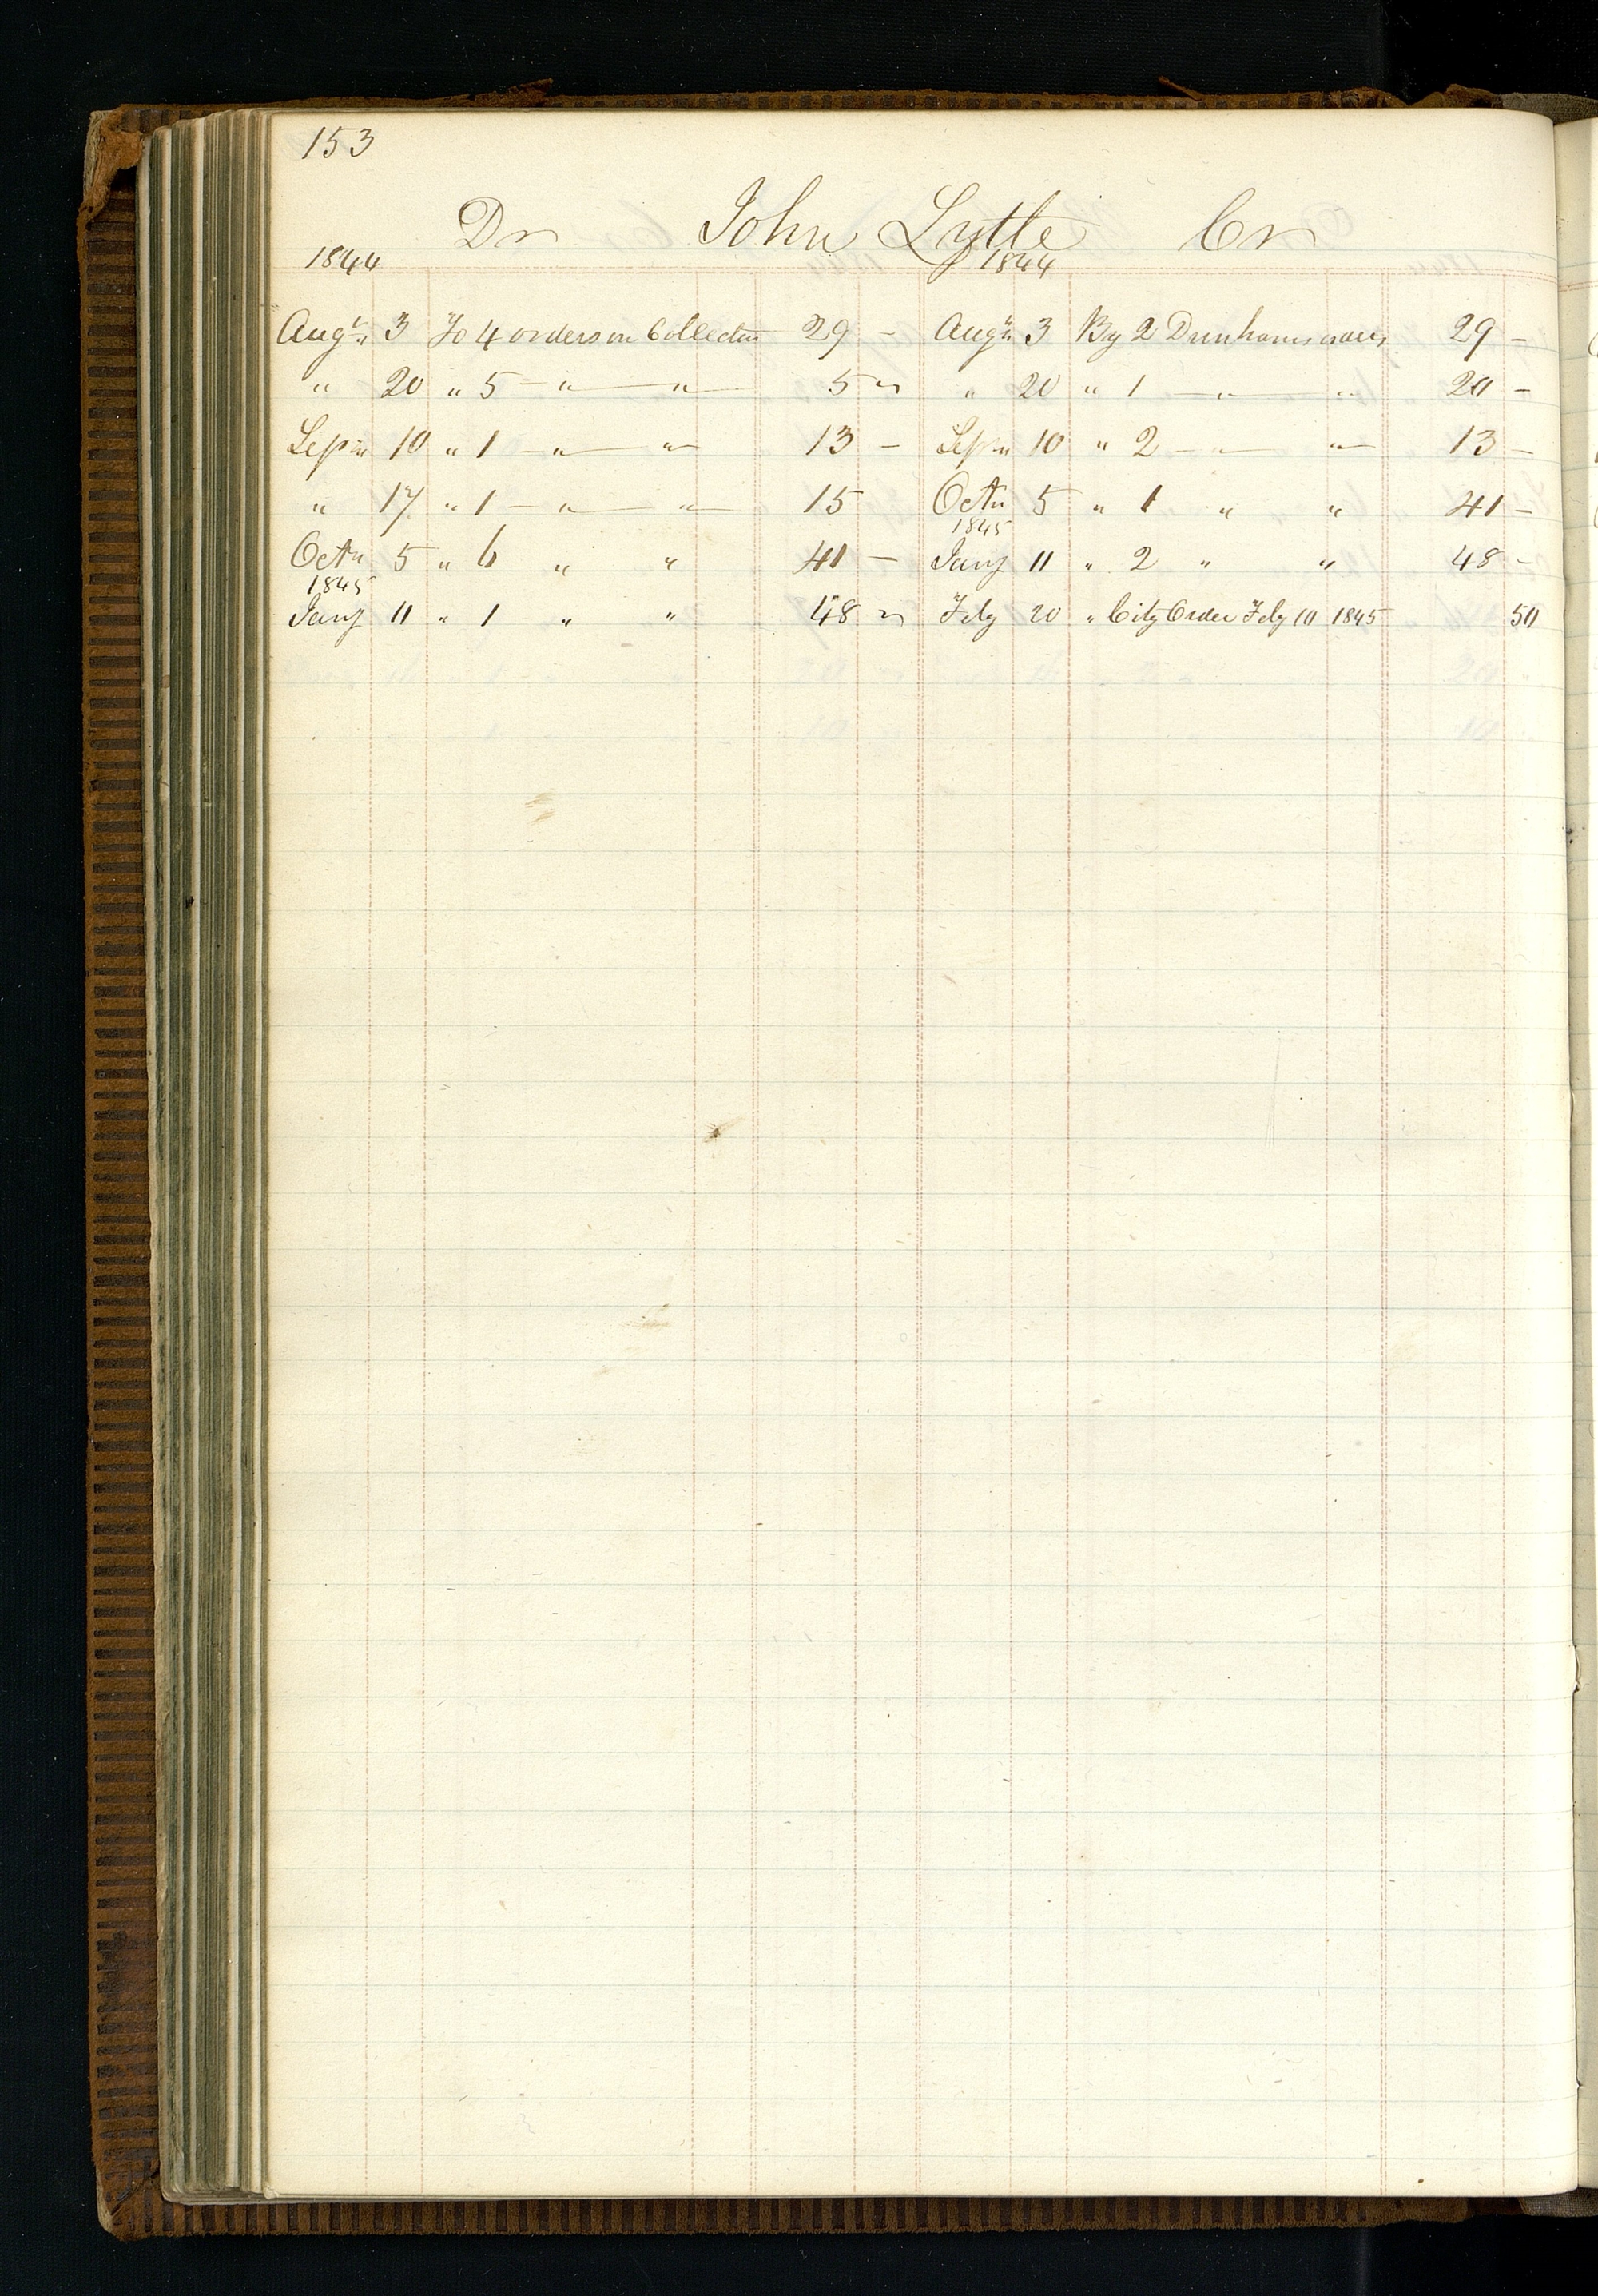 153
Dr John Lytle Cr
1844 1844
Augt 3 To 4 orders on Collector 29 - Augt 3 By 2 Dunhams 29 -
" 20 " 5 - " - " 5 " " 20 " 1 - " - " 20 -
Sepr 10 " 1 - " - " 13 - Sepr 10 " 2 - " - " 13 -
" 17 " 1 - " - " 15 Octr 5 " 1 " " 41 -
1845
Octr 5 " 6 " " 41 - Jany 11 " 2 " " 48 -
1845
Jany 11 " 1 " " 48 " Feby 20 " City Order Feby 10 1845 50